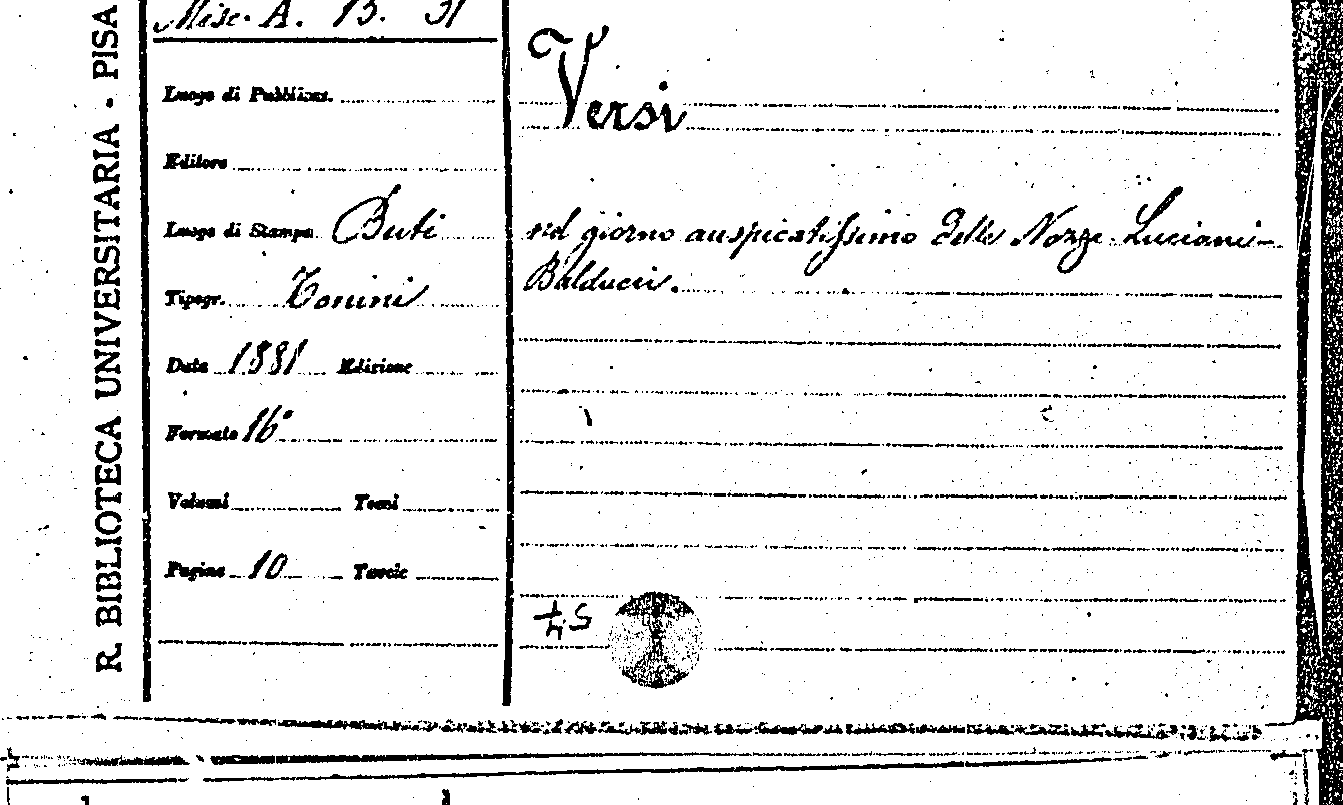 R. BIBLIOTECA UNIVERSITARIA - PISA
Misc. A. 13. 31
Luogo di Pubblicaz.
Editore
Luogo di Stampa Buti
Tipogr. Tonini
Data 1881 Edizione
Formato 16°
Volumi Tomi
Pagine 10 Tavole
Versi
nel giorno auspicatissimo delle Nozze Luciani-
Balducci.